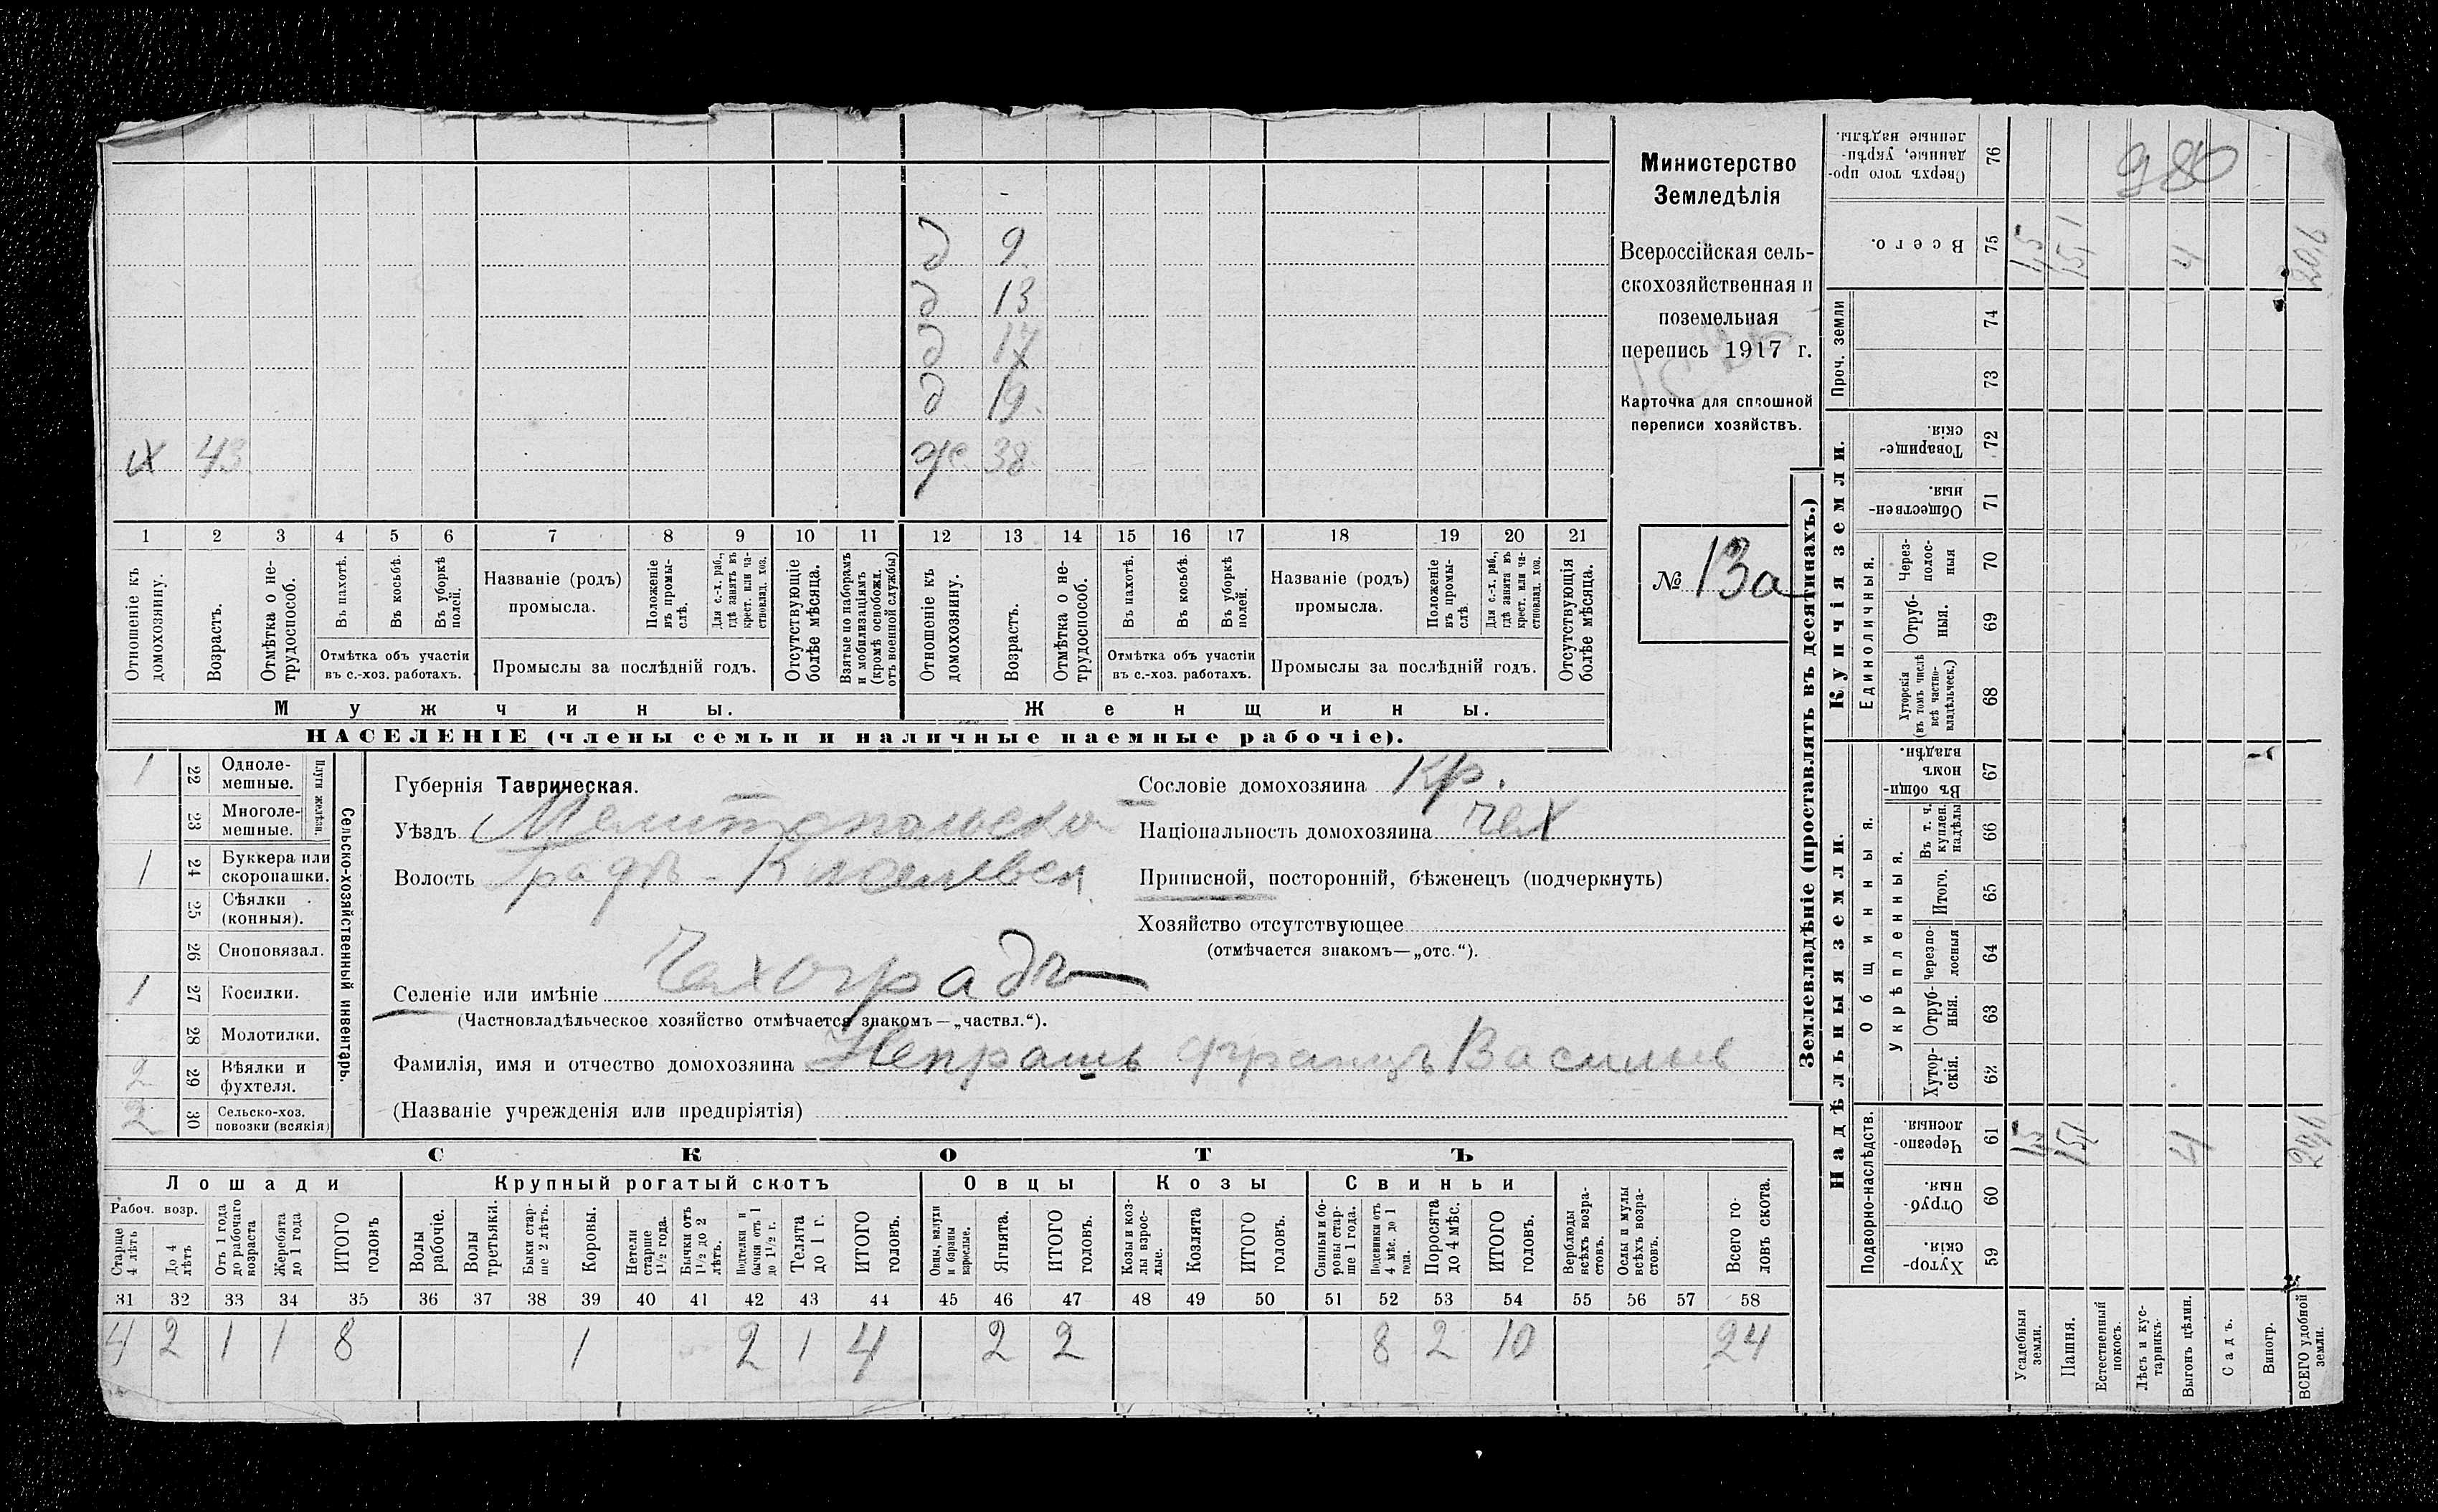 д 9
д 13
д 17
д 19.
х 43 ж 38
1 2 3 4 5 6 7 8 9 10 11 12 13 14 15 16 17 18 19 20 21
Отношеніе къ домохозяину.
Возрастъ.
Отмѣтка о не-трудоспособ.
Въ пахотѣ.
Въ косьбѣ.
Въ уборкѣ полей.
Отмѣтка объ участіи
въ с.-хоз. работахъ.
Названіе (родъ)
промысла.
Положеніе въ промы-слѣ.
Для с.-х. раб., гдѣ занятъ въ крест. или ча-стновлад. хоз.
Промыслы за послѣдній годъ.
Отсутствующіе болѣе мѣсяца.
Взятые по наборамъ и мобилизаціямъ (кромѣ освобожд. отъ военной службы)
Отношеніе къ домохозяину.
Возрастъ.
Отмѣтка о не-трудоспособ.
Въ пахотѣ.
Въ косьбѣ.
Въ уборкѣ полей.
Отмѣтка объ участіи
въ с.-хоз. работахъ.
Названіе (родъ)
промысла.
Положеніе въ промы-слѣ.
Для с.-х. раб., гдѣ занята въ крест. или ча-стновлад. хоз.
Промыслы за послѣдній годъ.
Отсутствующія болѣе мѣсяца.
Мужчины. Женщины.
НАСЕЛЕНІЕ (члены семьи и наличные наемные рабочіе).
Министерство
Земледѣлія
Всероссійская сель-
скохозяйственная и
поземельная
перепись 1917 г.
Карточка для сплошной
переписи хозяйствъ.
№ 13а
1 22 Одноле-мешные.
23 Многоле-мешные.
Плуги желѣзн.
1 24 Буккера или скоропашки.
25 Сѣялки (конныя).
26 Сноповязал.
1 27 Косилки.
28 Молотилки.
2 29 Вѣялки и фухтеля.
2 30 Сельско-хоз. повозки (всякія)
Сельско-хозяйственный инвентарь.
Губернія Таврическая.
Уѣздъ Мелитопольскій
Волость
Селеніе или имѣніе Чехоградъ
(Частновладѣльческое хозяйство отмѣчается знакомъ—„частвл.“).
Фамилія, имя и отчество домохозяина Непрашъ Францъ Васильев
(Названіе учрежденія или предпріятія)
Сословіе домохозяина Кр.
Національность домохозяина чех
Приписной, посторонній, бѣженецъ (подчеркнуть)
Хозяйство отсутствующее
(отмѣчается знакомъ—„отс.“).
СКОТЪ
Лошади Крупный рогатый скотъ Овцы Козы Свиньи
Рабоч. возр.
Старше 4 лѣтъ
До 4 лѣтъ
Отъ 1 года до рабочаго возраста
Жеребята до 1 года
ИТОГО головъ
Волы рабочіе.
Волы третьяки.
Быки стар-ше 2 лѣтъ.
Коровы.
Нетели старше 1½ года.
Бычки отъ 1½ до 2 лѣтъ.
Подтелки и бычки отъ 1 до 1½ г.
Телята до 1 г.
ИТОГО головъ.
Овцы, валухи и бараны взрослые.
Ягнята.
ИТОГО головъ.
Козы и коз-лы взрос-лые.
Козлята
ИТОГО головъ.
Свиньи и бо-ровы стар-ше 1 года.
Подсвинки отъ 4 мѣс. до 1 года.
Поросята до 4 мѣс.
ИТОГО головъ.
Верблюды всѣхъ возра-стовъ.
Ослы и мулы всѣхъ возра-стовъ.
Всего го-ловъ скота.
31 32 33 34 35 36 37 38 39 40 41 42 43 44 45 46 47 48 49 50 51 52 53 54 55 56 57 58
4 2 1 1 8 1 2 1 4 2 2 8 2 10 24
Землевладѣніе (проставлять въ десятинахъ.)
Купчія земли.
Надѣльныя земли.
Проч. земли
Единоличныя.
Общинныя.
Укрѣпленныя.
Подворно-наслѣдств.
Сверхъ того про-данные, укрѣп-ленные надѣлы. 76 980
Всего. 75 1,5 15,1 4 20,6
74
73
Товарище-скія. 72
Обществен-ныя. 71
Через-полос-ныя 70
Отруб-ныя. 69
Хуторскія (въ томъ числѣ всѣ частно-владѣльческ.) 68
Въ общи-номъ владѣн. 67
Въ т. ч. куплен. надѣлы 66
Итого. 65
Черезпо-лосныя 64
Отруб-ныя. 63
Хутор-скія. 62
Черезпо-лосныя. 61 1,5 15,1 4
Отруб-ныя. 60
Хутор-скія. 59
Усадебныя земли.
Пашня.
Естественный покосъ.
Лѣсъ и кус-тарникъ.
Выгонъ цѣлин.
Садъ.
Виногр.
ВСЕГО удобной земли.